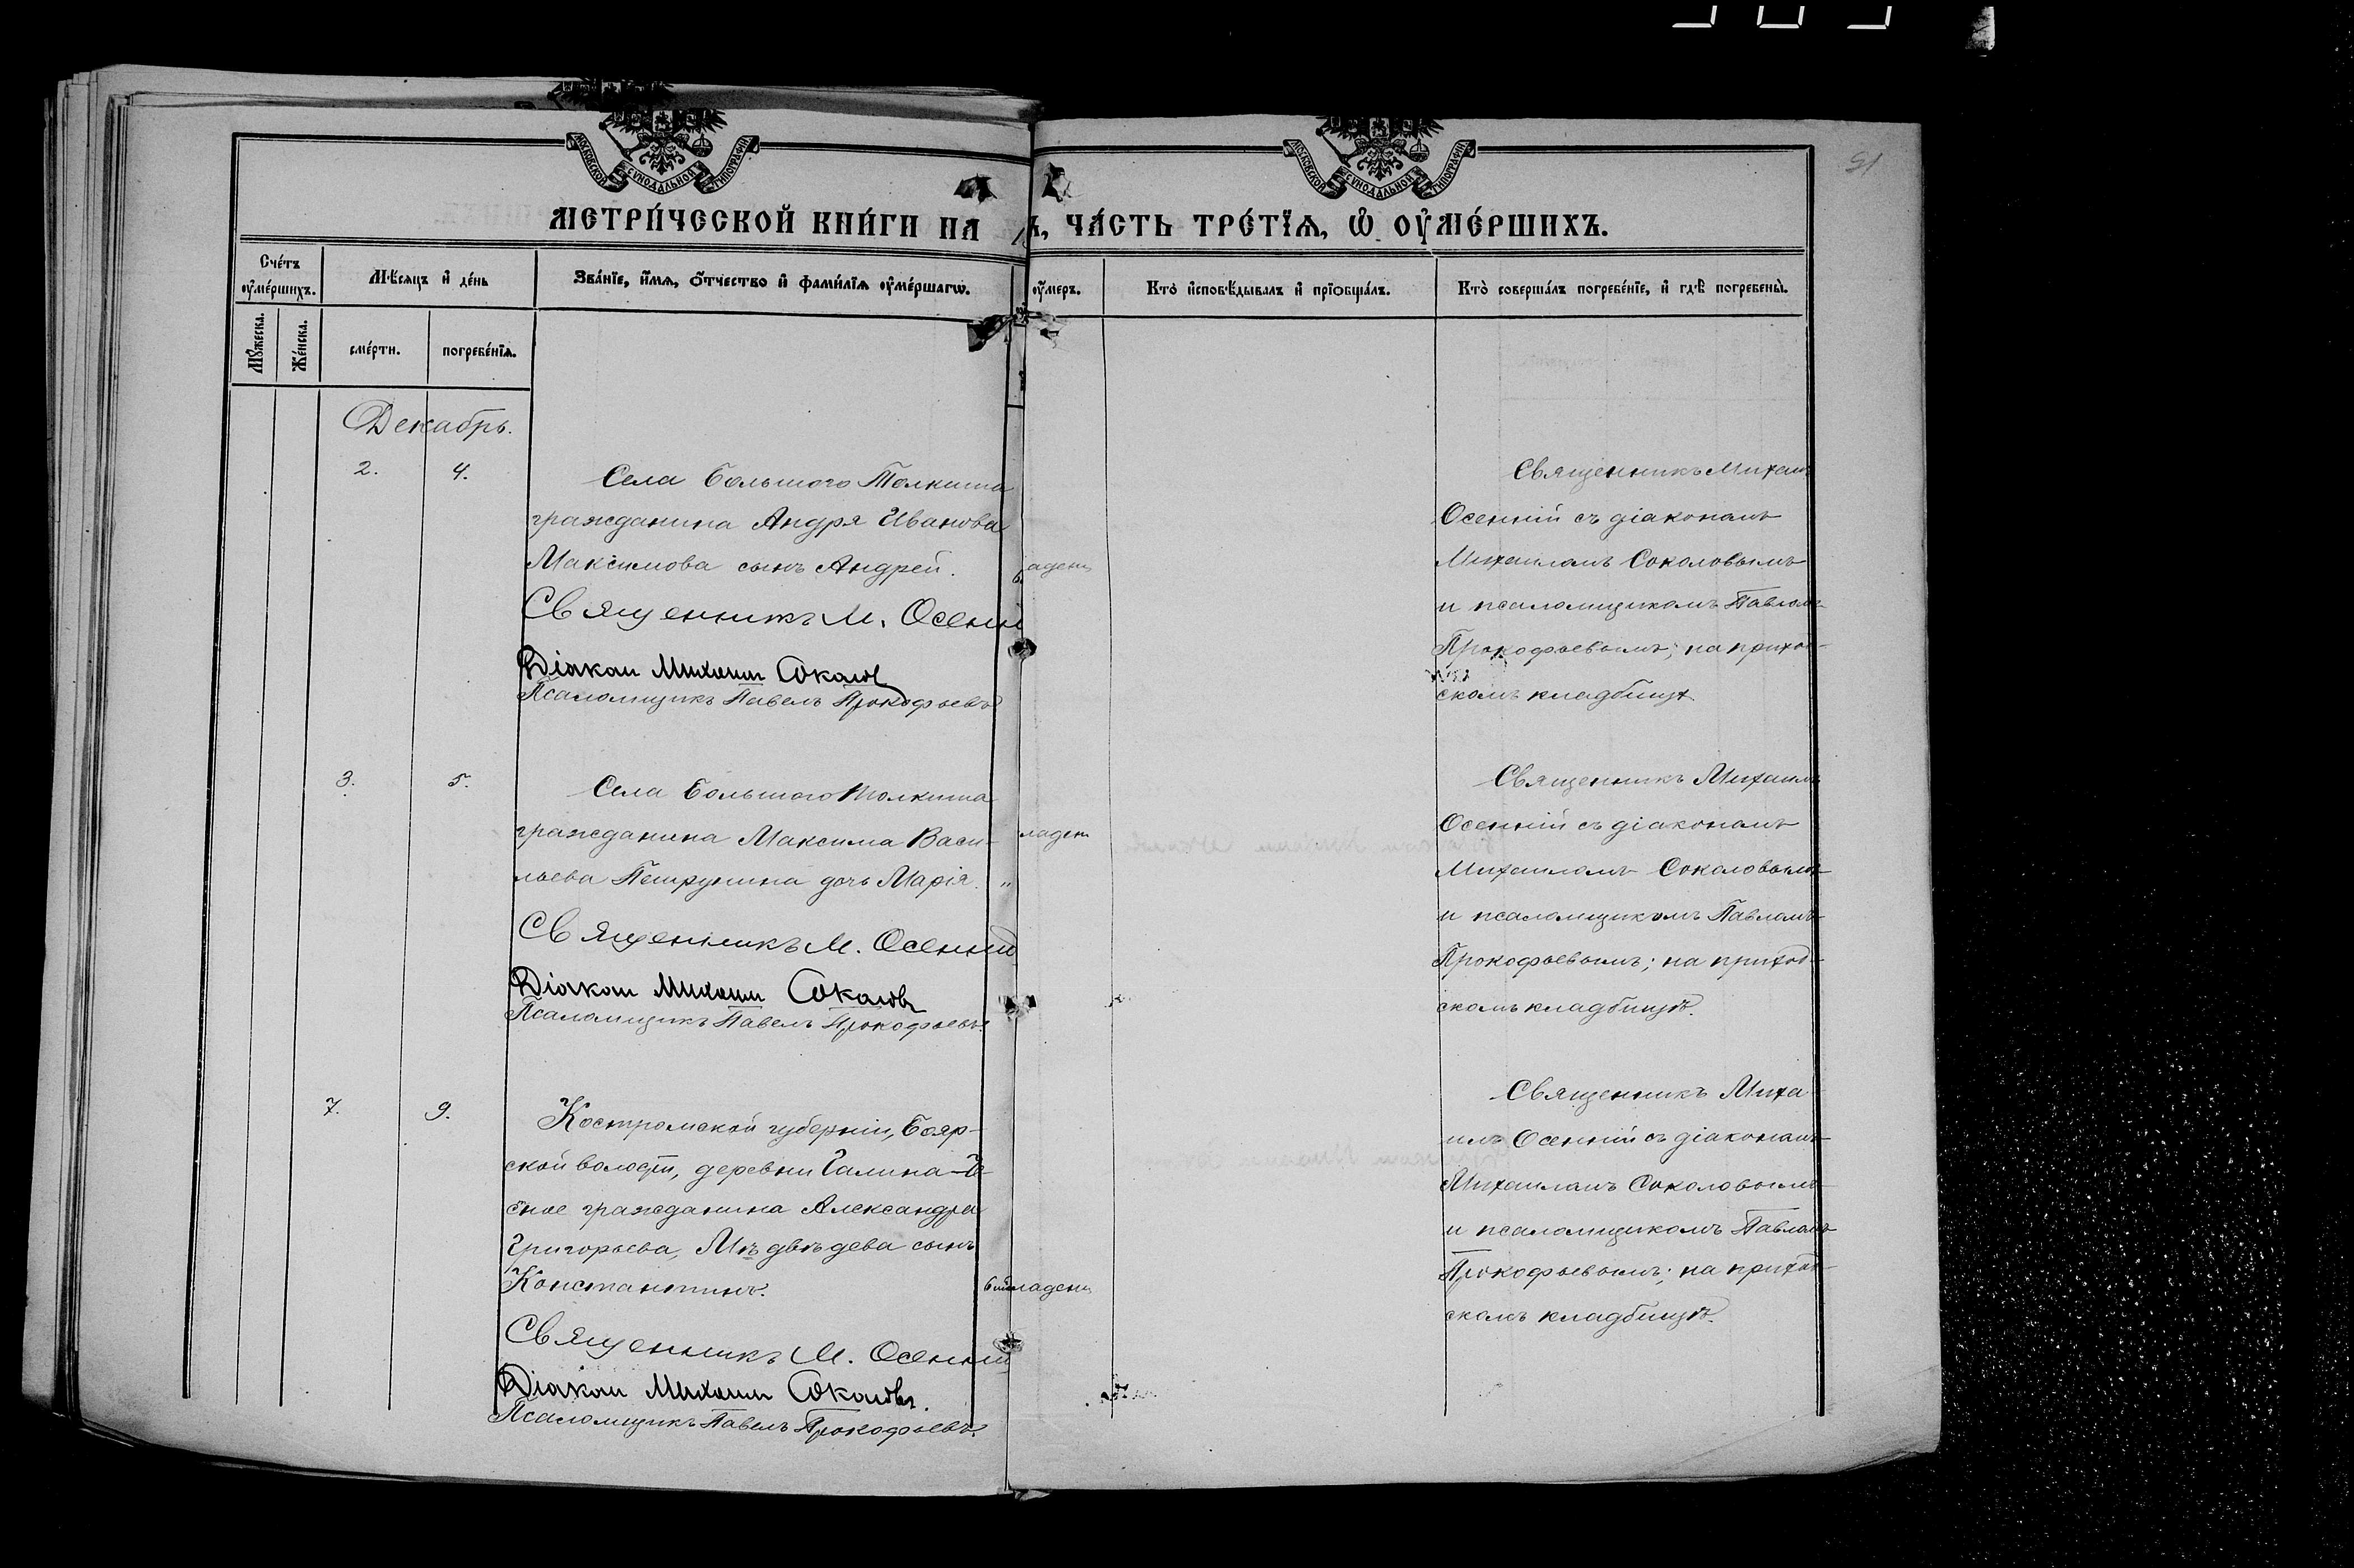 51
МОСКОВСКОЙ СѴНОДАЛЬНОЙ ТИПОГРАФІИ
МОСКОВСКОЙ СѴНОДАЛЬНОЙ ТИПОГРАФІИ
МЕТРИ́ЧЕСКОЙ КНИ́ГИ НА
Ъ, ЧА́СТЬ ТРЕ́ТІѦ, Ѽ ОУ҆МЕ́РШИХЪ.
Сче́тъ
оу҆ме́ршихъ.
Мѣ́сѧцъ и҆ де́нь
Зва́нїе, и҆́мѧ, ѻ҆́тчество и҆ фами́лїѧ оу҆ме́ршагѡ.
оу҆́меръ.
Кто̀ и҆сповѣ́дывалъ и҆ прїобща́лъ.
Кто̀ соверша́лъ погребе́нїе, и҆ гдѣ̀ погребены̀.
Мꙋ́жеска.
Же́нска.
сме́рти.
погребе́нїѧ.
Декабрь.
2.
4.
Села Большого Толкиша
гражданина Андрея Иванова
Максимова сынъ Андрей.
Священникъ М. Осенн
Діакон Михаил Соколов
Псаломщикъ Павелъ Прокофьевъ
аденц
Священникъ Михаилъ
Осенній съ діакономъ
Михаиломъ Соколовымъ
и псаломщикомъ Павломъ
Прокофьевымъ; на приход-
скомъ кладбищѣ.
3.
5.
Села Большого Толкиша
гражданина Максима Васи-
льева Петрунина дочь Марія. "
Священникъ М. Осенній
Діакон Михаил Соколовъ
Псаломщикъ Павелъ Прокофьевъ.
ладен
Священникъ Михаилъ
Осенній съ діакономъ
Михаиломъ Соколовымъ
и псаломщикомъ Павломъ
Прокофьевымъ; на приход-
скомъ кладбищѣ.
7.
9.
Костромской губерніи, Бояр-
ской волости, деревни
гражданина Александра
Григорьева, Мѣдвѣдева сынъ
Константинъ.
Священникъ М. Осенній
Діакон Михаил Соколовъ.
Псаломщикъ Павелъ Прокофьевъ.
6 младенц
Священникъ Миха-
илъ Осенній съ діакономъ
Михаиломъ Соколовымъ
и псаломщикомъ Павломъ
Прокофьевымъ; на приход-
скомъ кладбищѣ.